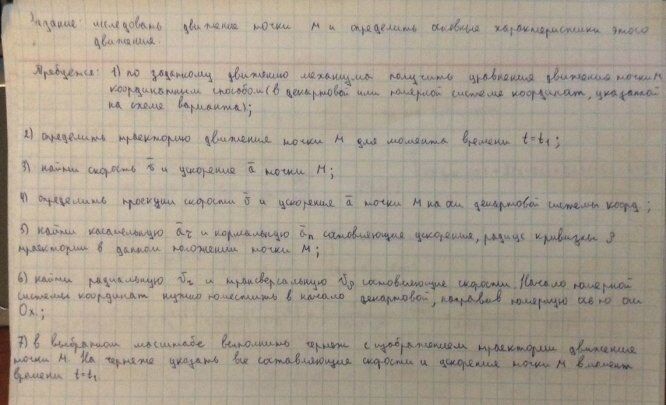 Задание: исследовать движение точки М и определить основные характеристики этого
движения.
Требуется: 1) по заданному движению механизма получить уравнения движения точки М
координатным способом (в декартовой или полярной системе координат, указанной
на схеме варианта);
2) определить траекторию движения точки М для момента времени t=t₁;
3) найти скорость v̄ и ускорение ā точки М;
4) определить проекции скорости v̄ и ускорения ā точки М на оси декартовой системы коорд.;
5) найти касательную āτ и нормальную ān составляющие ускорения, радиус кривизны ρ
траектории в данном положении точки М;
6) найти радиальную v̄r и трансверсальную v̄p составляющие скорости. Начало полярной
системы координат нужно поместить в начало декартовой, направив полярную ось по оси
Ox.;
7) в выбранном масштабе выполнить чертеж с изображением траектории движения
точки М. На чертеже указать все составляющие скорости и ускорения точки М в момент
времени t=t₁.